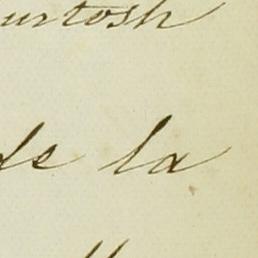 urtosh
de la